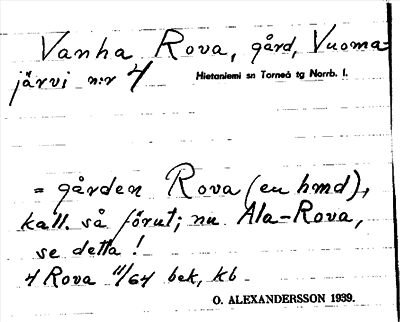 Vanha Rova, gård, Vuoma-
järvi n:r 4
Hietaniemi sn Torneå tg Norrb. l.
= gården Rova (en hmd),
kall. så förut; nu Ala-Rova,
se detta!
4 Rova 11/64 bek, kb.
O. ALEXANDERSSON 1939.